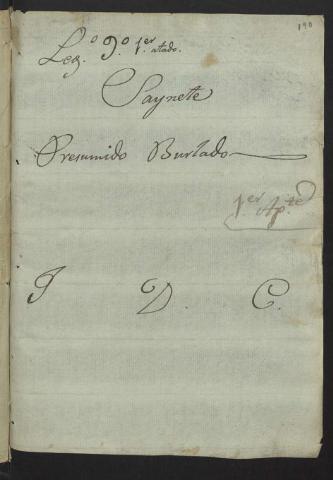 190
Leg.º 9.º 1.er atado.
Saynete
Presumido Burlado
1.er Ap.te
J D. C.